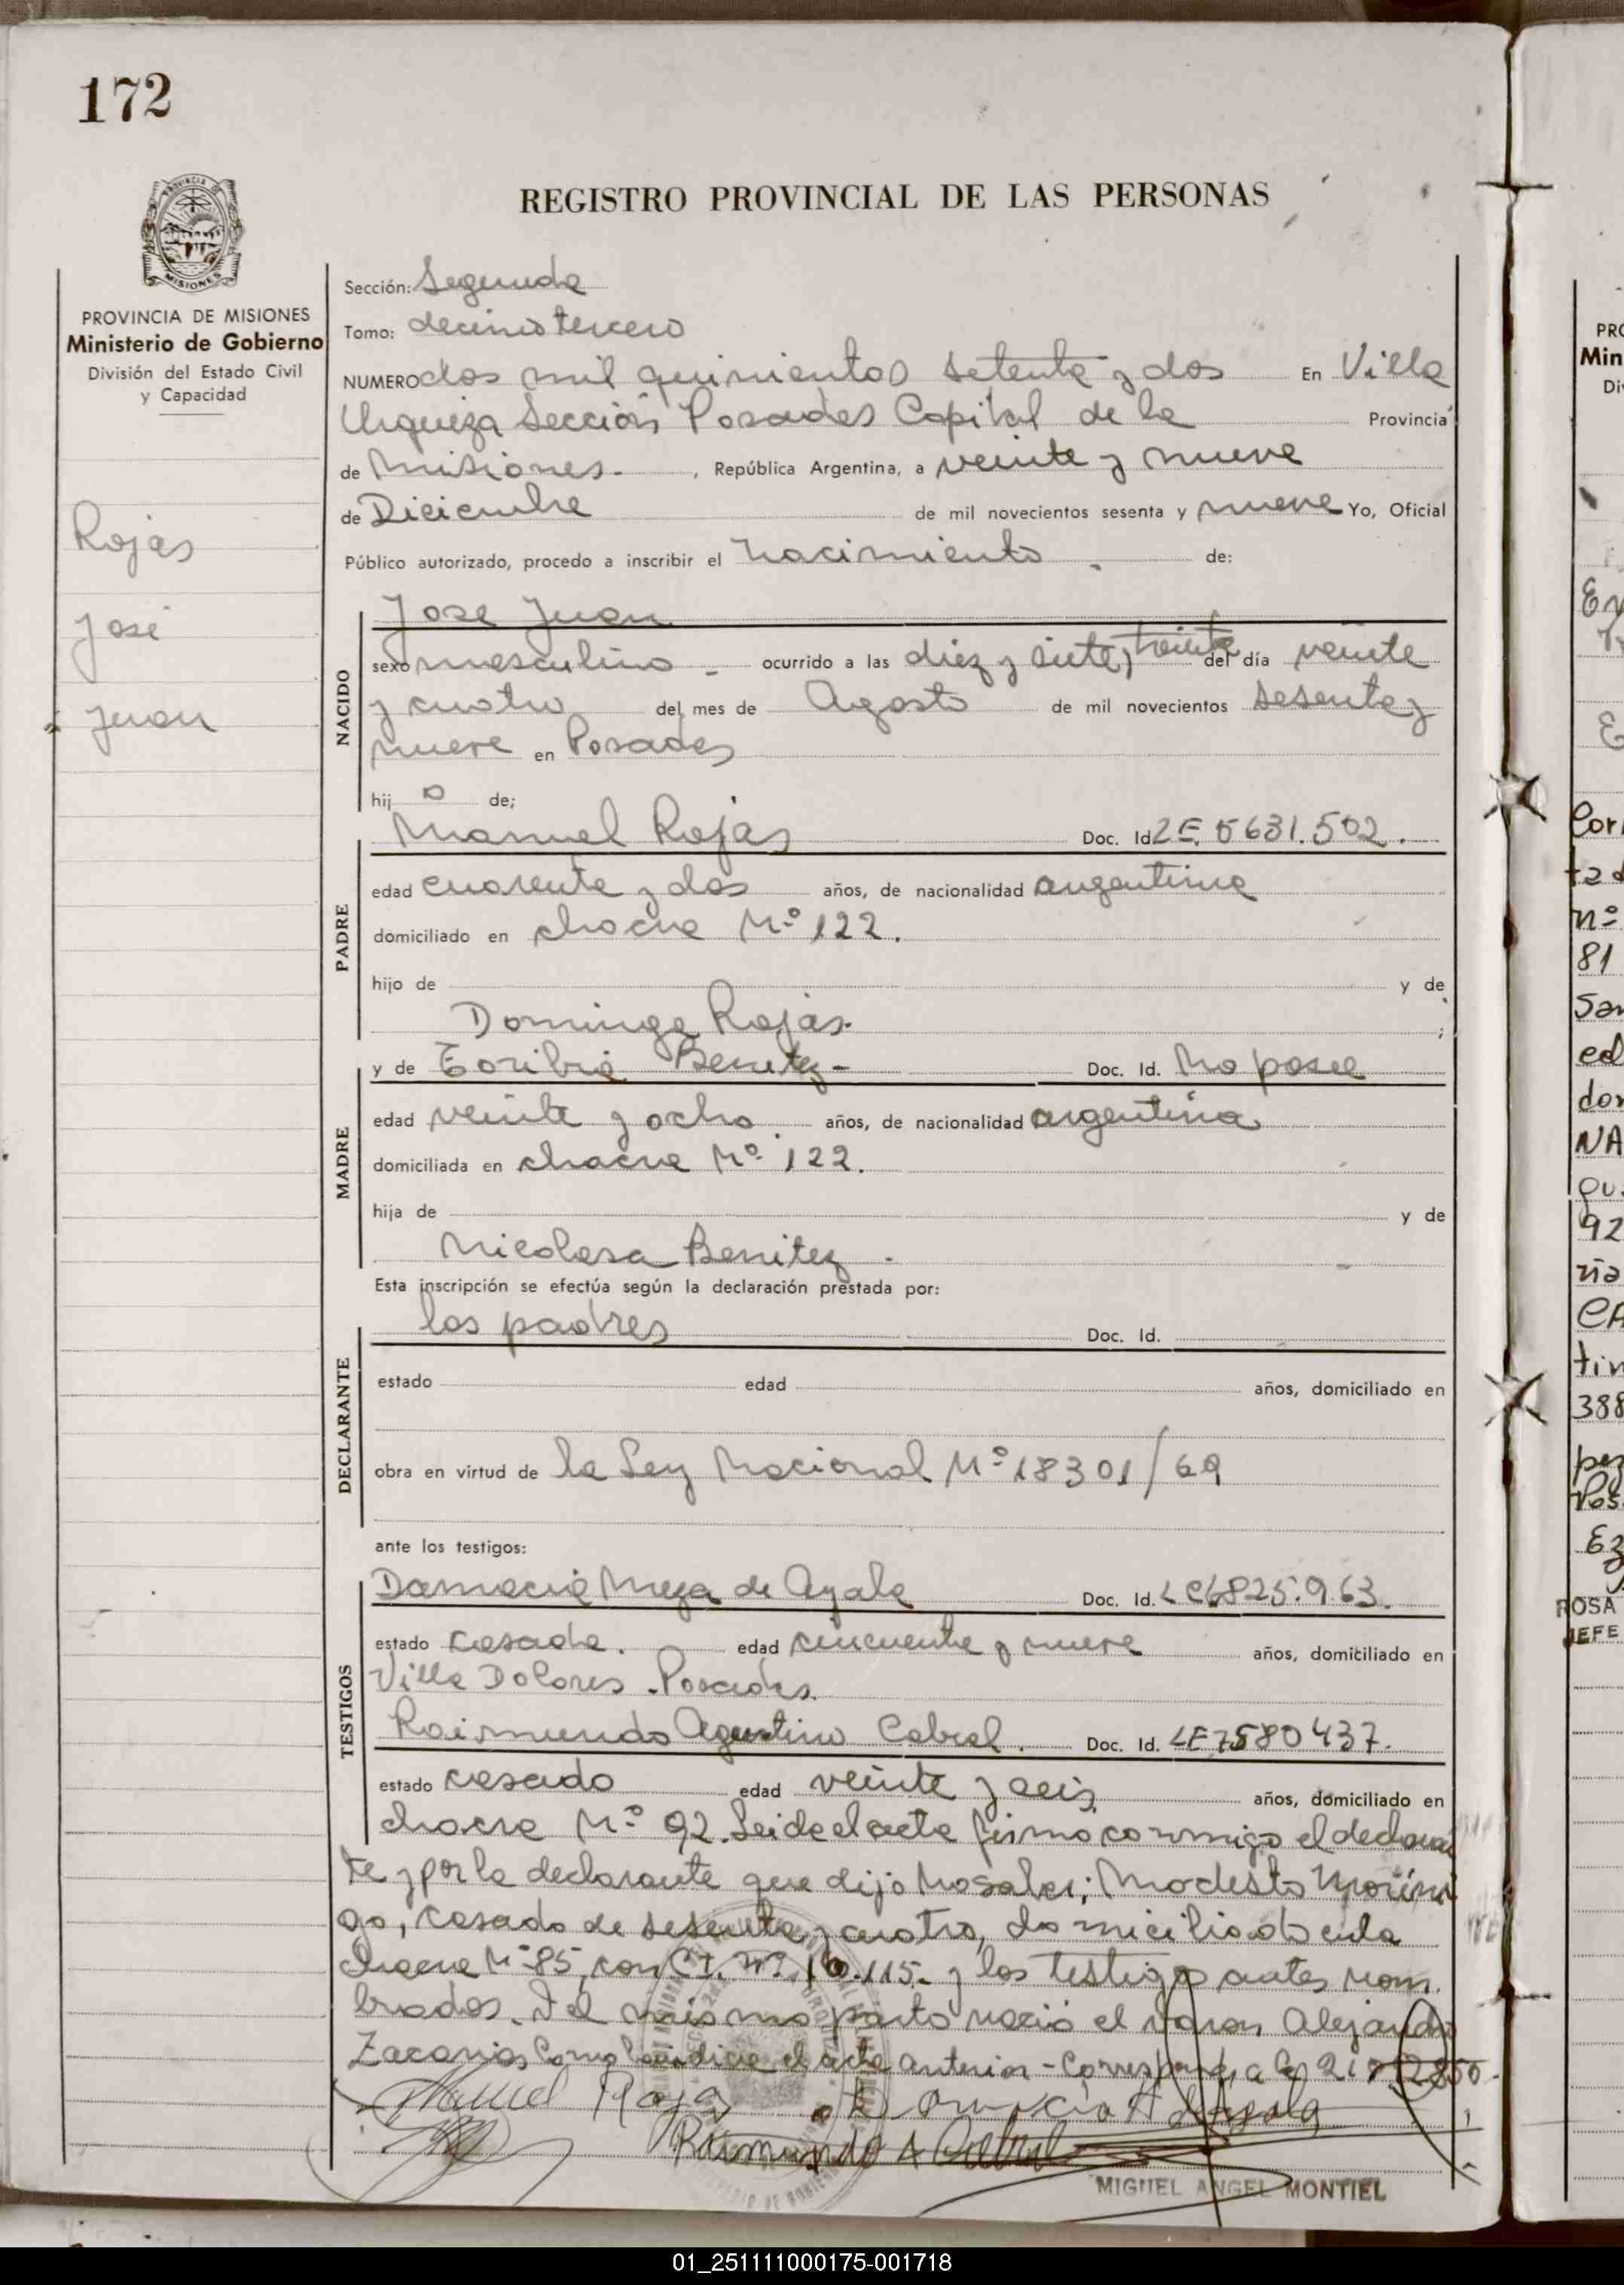 172
REGISTRO PROVINCIAL DE LAS PERSONAS
PROVINCIA DE MISIONES
Ministerio de Gobierno
División del Estado Civil
y Capacidad
Rojas
José
Juan
Sección: Segunda
Tomo: decimo tercero
NUMERO dos mil quinientos setenta y dos En Villa
Urquiza Sección Posadas Capital de la Provincia
de Misiones. , República Argentina, a veinte y nueve
de Diciembre de mil novecientos sesenta y nueve Yo, Oficial
Público autorizado, procedo a inscribir el nacimiento de:
NACIDO
Jose Juan
sexo masculino ocurrido a las diez y siete, treinta del día veinte
y cuatro del mes de Agosto de mil novecientos sesenta y
nueve en Posadas
hij o de;
PADRE
Manuel Rojas Doc. Id LE. 5631.502.
edad cuarenta y dos años, de nacionalidad argentina
domiciliado en chacra Nº 122.
hijo de y de
Dominga Rojas. ;
MADRE
y de Toribia Benitez - Doc. Id. No posee
edad veinte y ocho años, de nacionalidad argentina
domiciliada en chacra Nº 122.
hija de y de
Nicolasa Benitez.
Esta inscripción se efectúa según la declaración prestada por:
DECLARANTE
los padres Doc. Id.
estado edad años, domiciliado en
obra en virtud de la Ley Nacional Nº 18301/69
ante los testigos:
TESTIGOS
Damacia Meza de Ayala Doc. Id. LC6825.963.
estado casada. edad cincuenta y nueve años, domiciliado en
Villa Dolores. Posadas.
Raimundo Agustino Cabral. Doc. Id. LE 7580437.
estado casado edad veinte y seis años, domiciliado en
chacra Nº 92. Leida el acta firma conmigo el declaran
te y por la declarante que dijo no saber; Modesto Moríni
go, casado de sesenta y cuatro, domiciliado en la
chacra Nº 85, con C.I. 10.115. y los testigos antes nom
brados. Del mismo parto nació el varon Alejandro
Zacarias Como lo indica el acta anterior - Corresponde a la
Manuel Rojas
Raimundo A Cabral
MIGUEL ANGEL MONTIEL
01_251111000175-001718